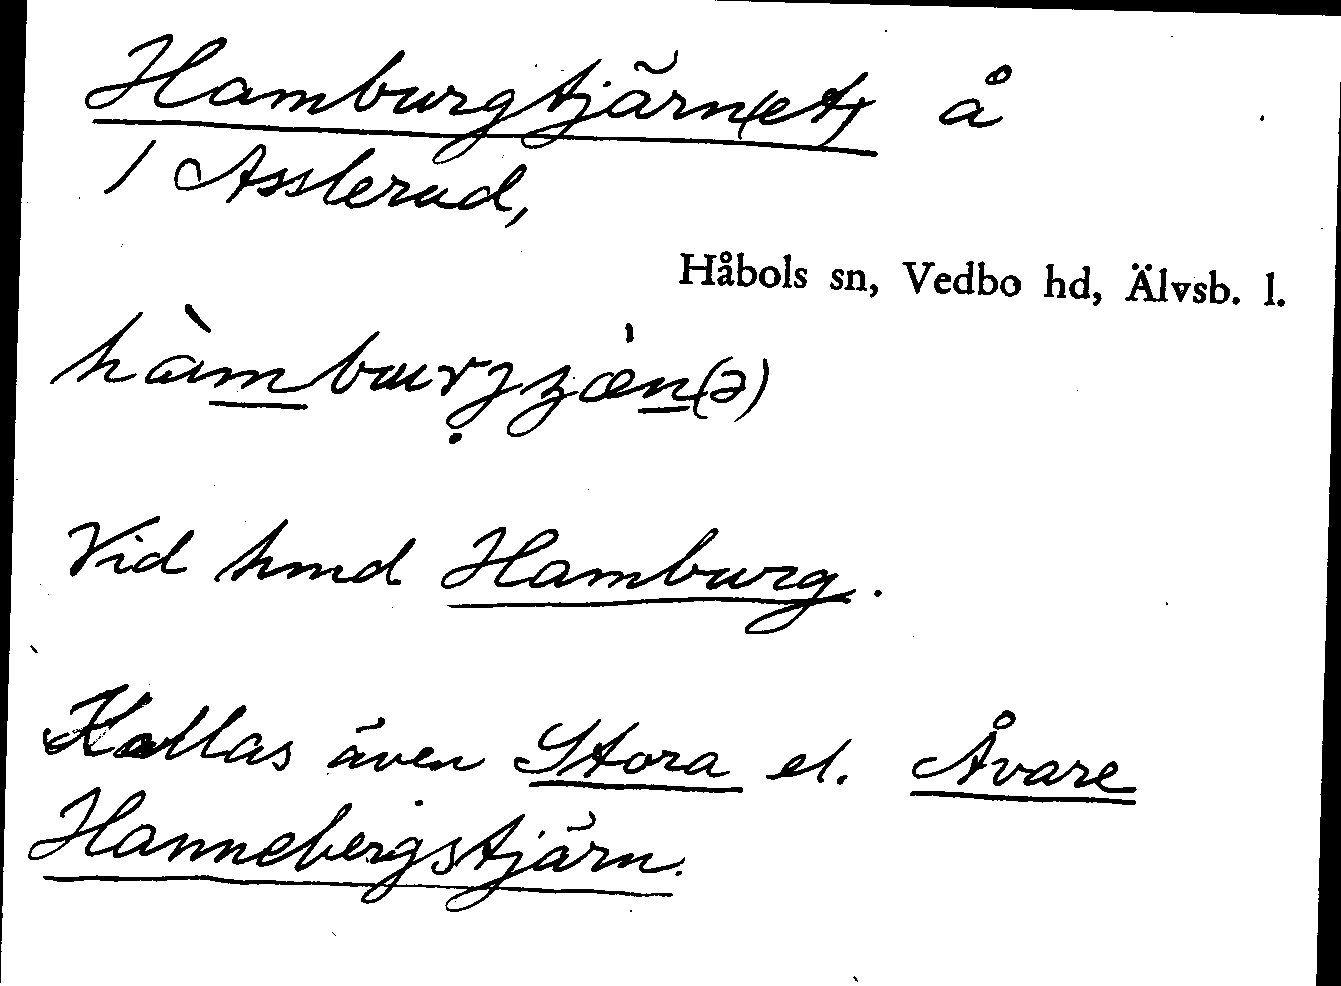 Hamburgtjärn(et) å
1 Asslerud,
Håbols sn, Vedbo hd, Älvsb. l.
Vid hmd Hamburg.
Kallas även Stora el. Åvare
Hannebergstjärn.